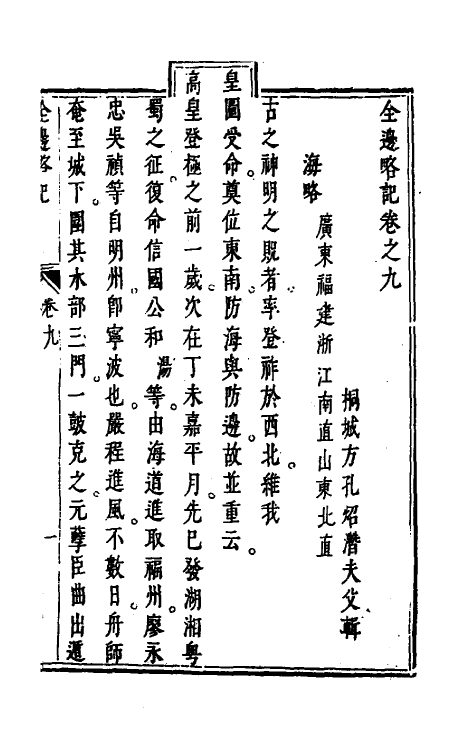 全邊略記卷之九
桐城方孔炤潛夫父輯
海略 廣東福建浙江南直山東北直
古之神明之戡者率登祚於西北維我
皇圖受命奠位東南防海與防邊故並重云
高皇登極之前一歲次在丁未嘉平月先已發湖湘粤
蜀之征復命信國公和湯等由海道進取福州廖永
忠吳禎等自明州卽寧波也嚴程進風不數日舟師
奄至城下圍其水部三門一鼓克之元孽臣曲出遁
全邊略記 卷九 一